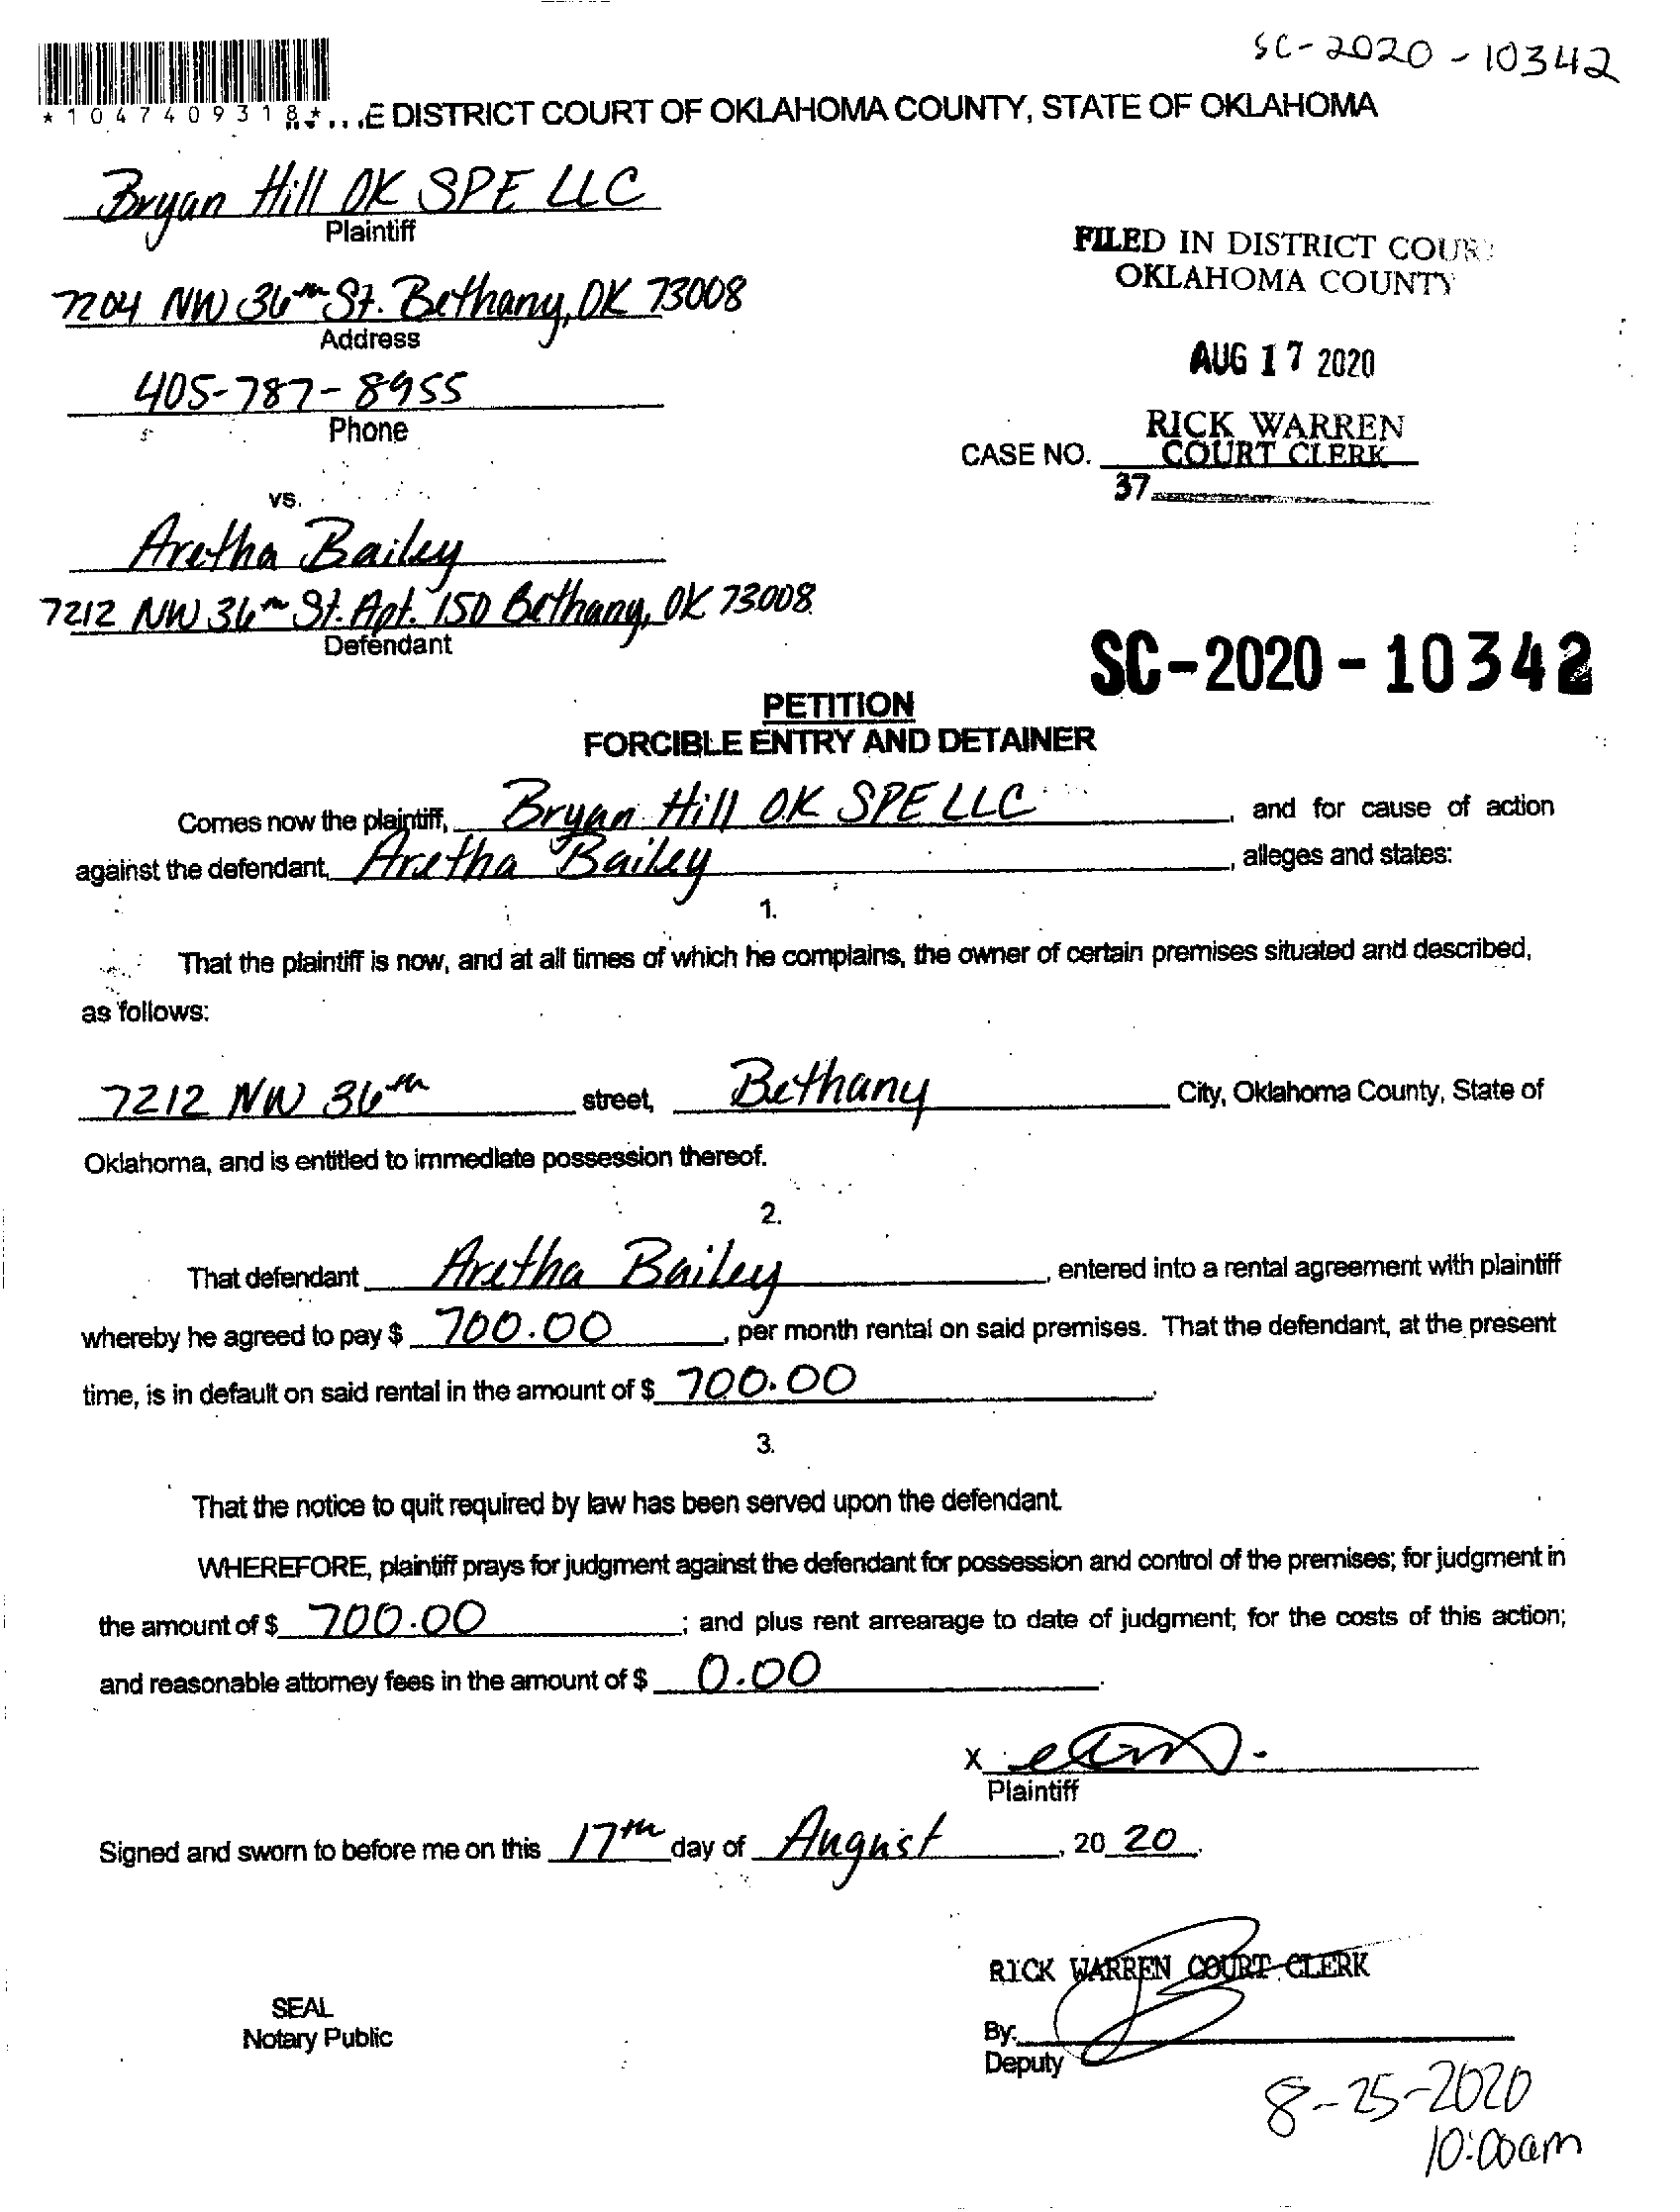 SC-2020-10342
*1047409318*
E DISTRICT COURT OF OKLAHOMA COUNTY, STATE OF OKLAHOMA
Bryan Hill OK SPE LLC
Plaintiff
7204 NW 36th St. Bethany, OK 73008
Address
405-787-8955
Phone
FILED IN DISTRICT COUR
OKLAHOMA COUNTY
AUG 17 2020
RICK WARREN
CASE NO. COURT CLERK
37
vs.
Aretha Bailey
7212 NW 36th St. Apt. 150 Bethany, OK 73008
Defendant
SC-2020-10342
PETITION
FORCIBLE ENTRY AND DETAINER
Comes now the plaintiff, Bryan Hill OK SPE LLC, and for cause of action
against the defendant, Aretha Bailey, alleges and states:
1.
That the plaintiff is now, and at all times of which he complains, the owner of certain premises situated and described,
as follows:
7212 NW 36th street, Bethany City, Oklahoma County, State of
Oklahoma, and is entitled to immediate possession thereof.
2.
That defendant Aretha Bailey, entered into a rental agreement with plaintiff
whereby he agreed to pay $ 700.00, per month rental on said premises. That the defendant, at the present
time, is in default on said rental in the amount of $ 700.00.
3.
That the notice to quit required by law has been served upon the defendant.
WHEREFORE, plaintiff prays for judgment against the defendant for possession and control of the premises; for judgment in
the amount of $ 700.00; and plus rent arrearage to date of judgment; for the costs of this action;
and reasonable attorney fees in the amount of $ 0.00.
X
Plaintiff
Signed and sworn to before me on this 17th day of August, 2020.
RICK WARREN COURT CLERK
SEAL
Notary Public
By:
Deputy
8-25-2020
10:00am